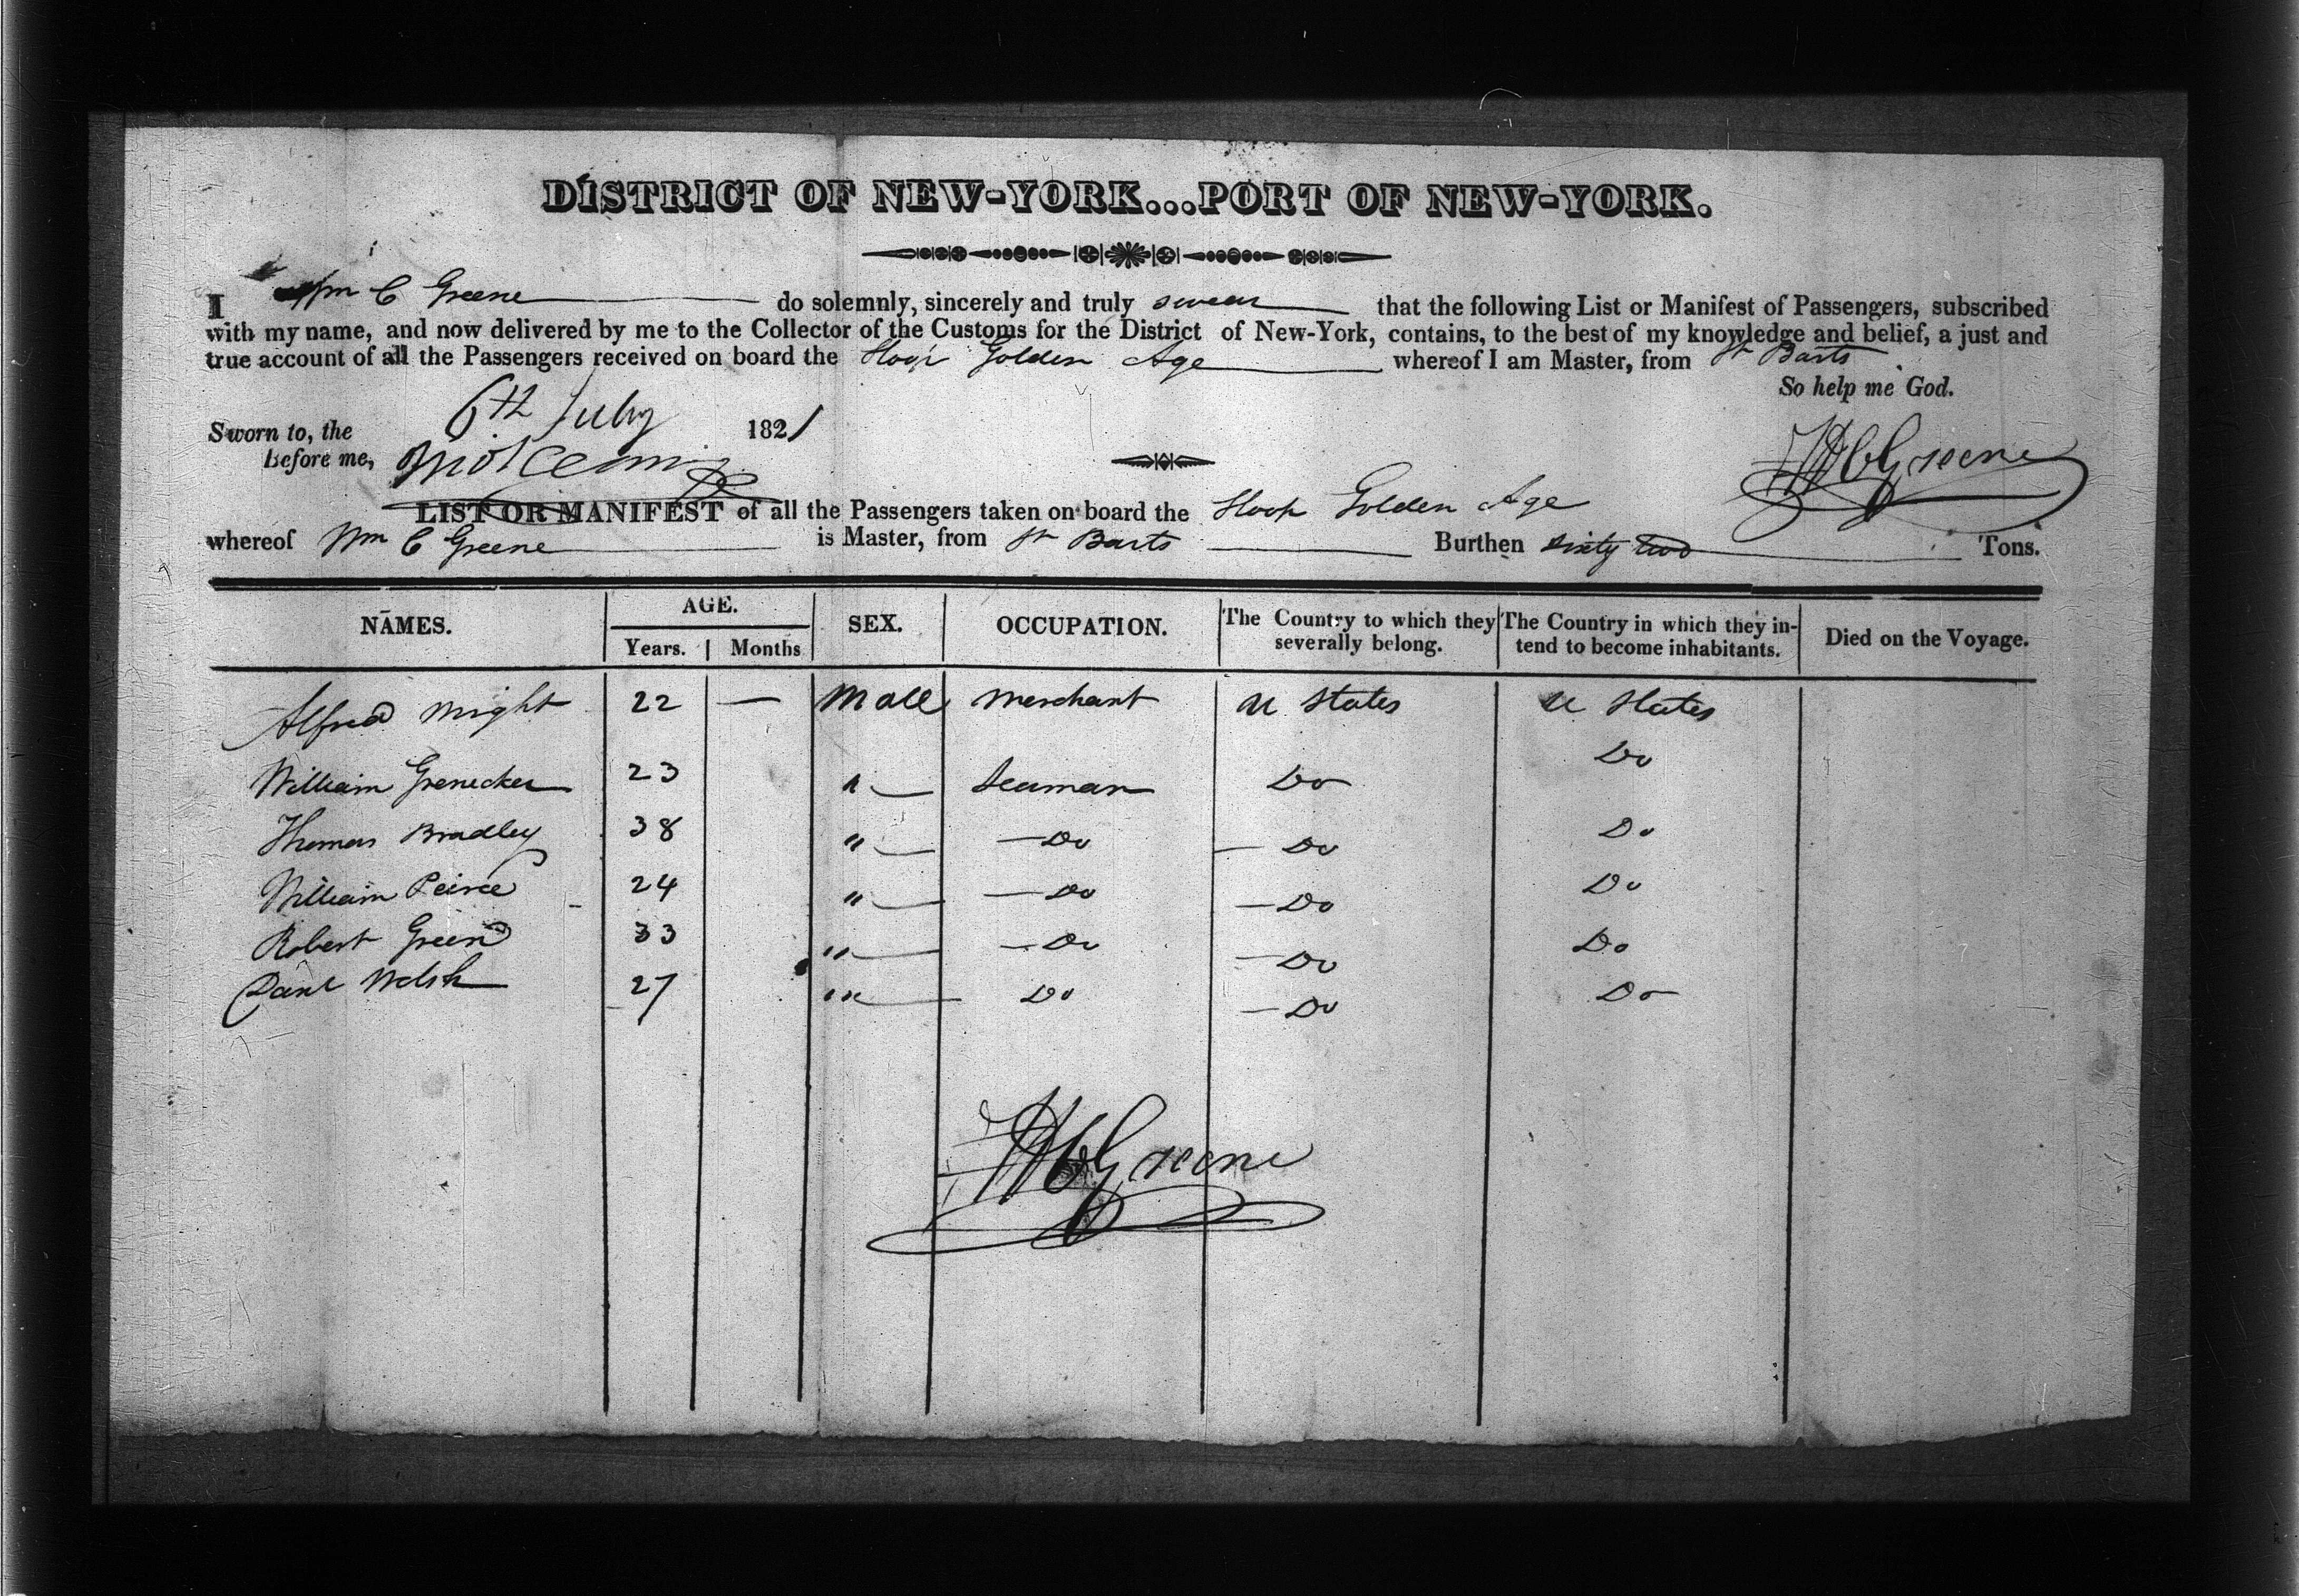 DISTRICT OF NEW-YORK...PORT OF NEW-YORK.
I Wm C Greene do solemnly, sincerely and truly swear that the following List or Manifest of Passengers, subscribed
with my name, and now delivered by me to the Collector of the Customs for the District of New-York, contains, to the best of my knowledge and belief, a just and
true account of all the Passengers received on board the Sloop Golden Age whereof I am Master, from St Barts
So help me God.
Sworn to, the 6th July 1821
Before me,
W C Greene
LIST OR MANIFEST of all the Passengers taken on board the Sloop Golden Age
whereof Wm C Greene is Master, from St Barts Burthen sixty two Tons.
NAMES. AGE. Years. Months SEX. OCCUPATION. The Country to which they severally belong. The Country in which they intend to become inhabitants. Died on the Voyage.
Alfred 22 — Male Merchant U States U States
William Grenecker 23 " Seaman Do Do
Thomas Bradley 38 " Do Do Do
William Peirce 24 " Do Do Do
Robert Green 33 " Do Do Do
Welsh 27 " Do Do Do
W C Greene